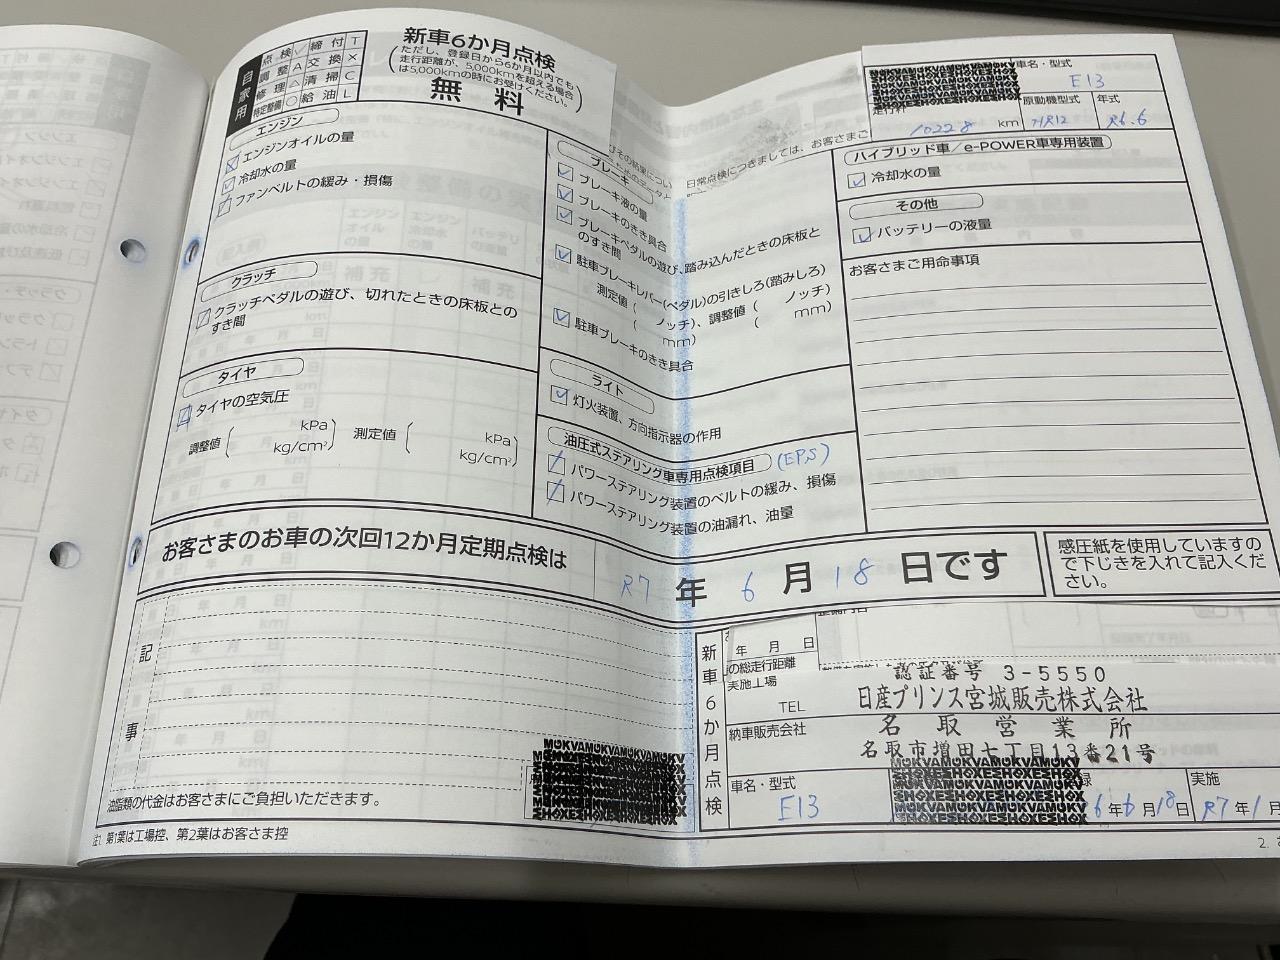 自家用
点検 ✓ 締付 T
調整 A 交換 X
修理 △ 清掃 C
特定整備 ○ 給油 L
新車6か月点検
(ただし、登録日から6か月以内でも
走行距離が、5,000kmを超える場合
は5,000kmの時にお受けください。)
無料
エンジン
エンジンオイルの量
冷却水の量
ファンベルトの緩み・損傷
クラッチ
クラッチペダルの遊び、切れたときの床板との
すき間
タイヤ
タイヤの空気圧
調整値( kPa kg/cm²) 測定値( kPa kg/cm²)
日常点検につきましては、お客さまご
ブレーキ
ブレーキ液の量
ブレーキのきき具合
ブレーキペダルの遊び、踏み込んだときの床板と
のすき間
駐車ブレーキレバー(ペダル)の引きしろ(踏みしろ)
測定値( ノッチ)、調整値( ノッチ)
( mm) ( mm)
駐車ブレーキのきき具合
ライト
灯火装置、方向指示器の作用
油圧式ステアリング車専用点検項目 (EPS)
パワーステアリング装置のベルトの緩み、損傷
パワーステアリング装置の油漏れ、油量
車名・型式
E13
km
原動機型式
HR12
年式
R6.6
10228
ハイブリッド車/e-POWER車専用装置
冷却水の量
その他
バッテリーの液量
お客さまご用命事項
お客さまのお車の次回12か月定期点検は R7年6月18日です
感圧紙を使用していますの
で下じきを入れて記入くだ
さい。
記事
油脂類の代金はお客さまにご負担いただきます。
注1. 第1葉は工場控、第2葉はお客さま控
新車6か月点検
年 月 日
の総走行距離
実施工場
TEL
認証番号 3-5550
日産プリンス宮城販売株式会社
納車販売会社
名取営業所
名取市増田七丁目13番21号
車名・型式
E13
録
6年6月18日
実施
R7年1月